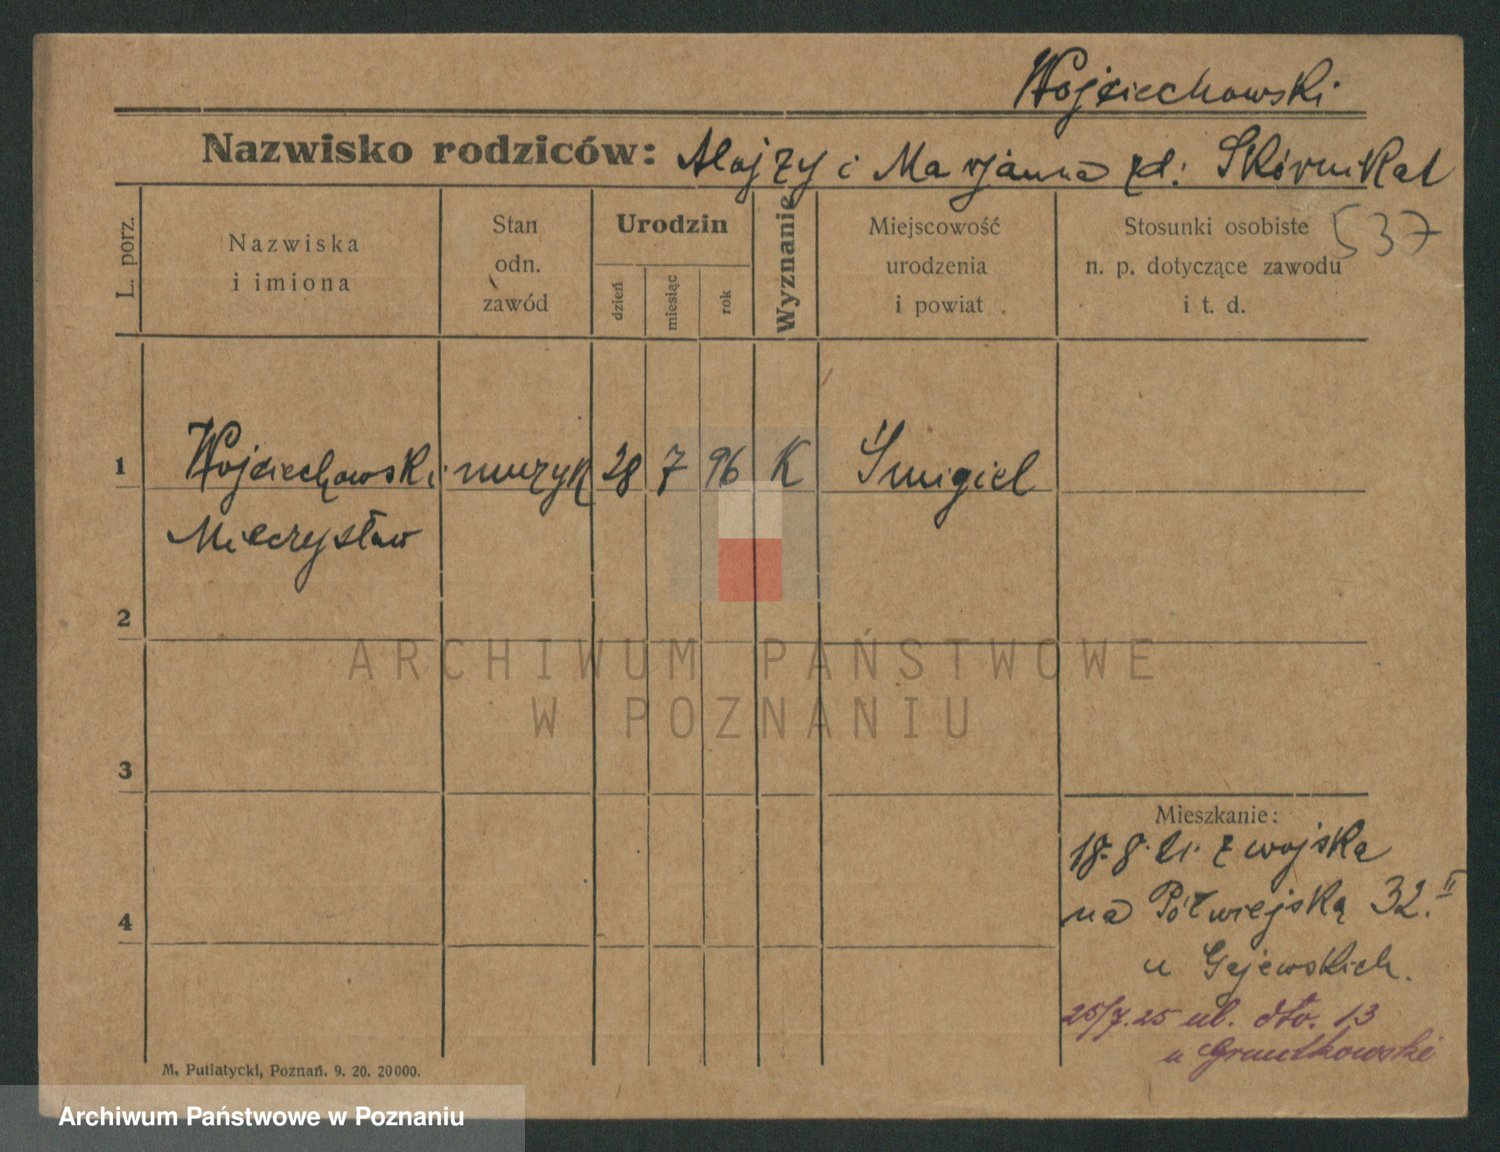 Wojciechowski
Nazwisko rodziców: Alojzy i Marjanna zd:
537
L. porz.
Nazwiska
i imiona
Stan
odn.
zawód
Urodzin
dzień
miesiąc
rok
Wyznanie
Miejscowość
urodzenia
i powiat
Stosunki osobiste
n. p. dotyczące zawodu
i t. d.
1 Wojciechowski muzyk 28 7 96 K Śmigiel
Mieczysław
2
3
4
Mieszkanie:
18.8.21. z wojska
na Półwiejską 32.II
u Gajewskich.
25/7.25 ul. dto. 13
u
M. Putiatycki, Poznań. 9. 20. 20000.
ARCHIWUM PAŃSTWOWE
W POZNANIU
Archiwum Państwowe w Poznaniu